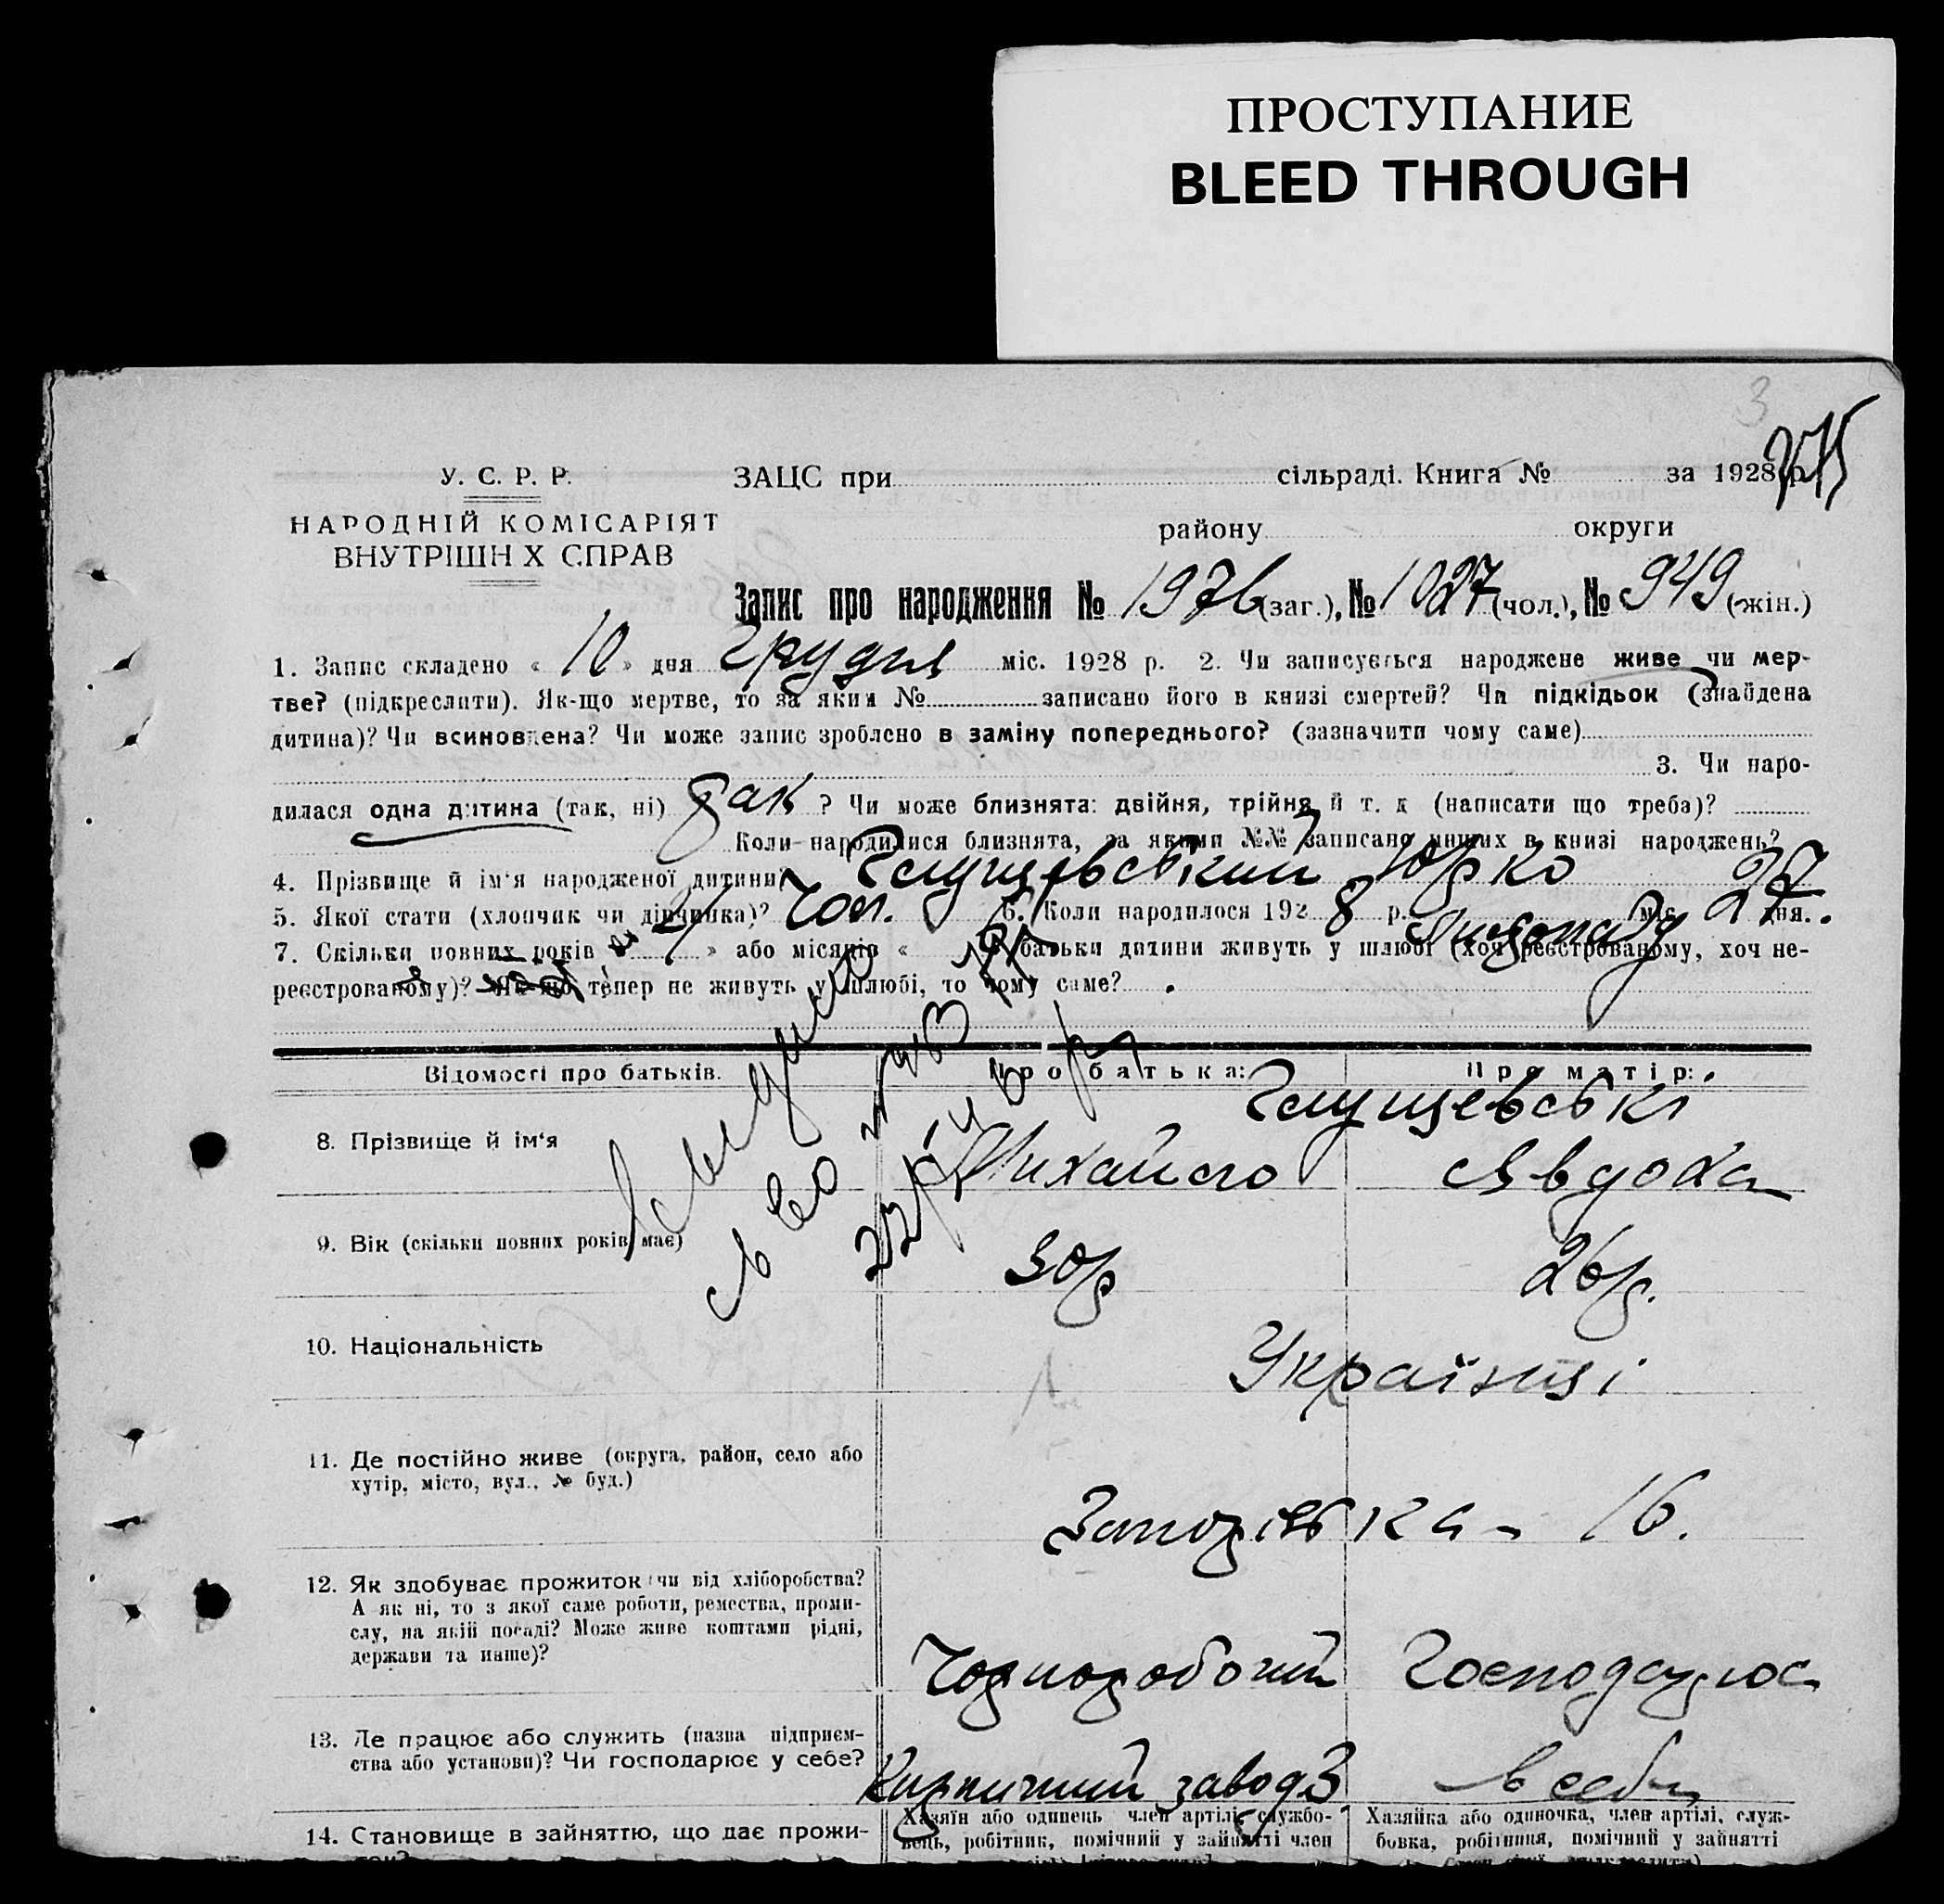 ПРОСТУПАНИЕ
BLEED THROUGH
3
У. С. Р. Р. ЗАЦС при сільраді. Книга № за 1928 р.
НАРОДНІЙ КОМІСАРІЯТ району округи
ВНУТРІШН Х СПРАВ
Запис про народження № 1976 (заг.), № 1027 (чол.), № 949 (жін.)
1. Запис складено « 10 » дня грудня міс. 1928 р. 2. Чи записується народжене живе чи мер-
тве? (підкреслити). Як-що мертве, то за яким № записано його в книзі смертей? Чи підкідьок (знайдена
дитина)? Чи всиновлена? Чи може запис зроблено в заміну попереднього? (зазначити чому саме)
3. Чи наро-
дилася одна дитина (так, ні) так ? Чи може близнята: двійня, трійня й т. д (написати що треба)?
Коли народилися близнята, за якими №№ записано инших в книзі народжень?
4. Прізвище й ім'я народженої дитини Глущевський Юрко
5. Якої стати (хлопчик чи дівчинка)? Чол. 6. Коли народилося 192 8 р. Листопаду міс. 27 дня.
7. Скільки повних років » або місяців « батьки дитини живуть у шлюбі (хоч реєстрованому, хоч не-
реєстрованому)? Як що тепер не живуть у шлюбі, то чому саме?
Відомості про батьків. Про батька: Про матір:
Глущевські
8. Прізвище й ім'я Михайло Явдоха
9. Вік (скільки повних років має) 30 р 26 р.
10. Національність Українці
11. Де постійно живе (округа, район, село або
хутір, місто, вул., № буд.)
16.
12. Як здобуває прожиток чи від хліборобства?
А як ні, то з якої саме роботи, ремества, проми-
слу, на якій посаді? Може живе коштами рідні,
держави та инше)?
Чорноробочий Господарює
13. Де працює або служить (назва підприєм-
ства або установи)? Чи господарює у себе?
Кирпичний завод 3 в себе
14. Становище в зайняттю, що дає прожи-
Хазяїн або одинець член артілі, службо-
вець, робітник, помічний у зайнятті член
Хазяйка або одиночка, член артілі, служ-
бовка, робітниця, помічний у зайнятті